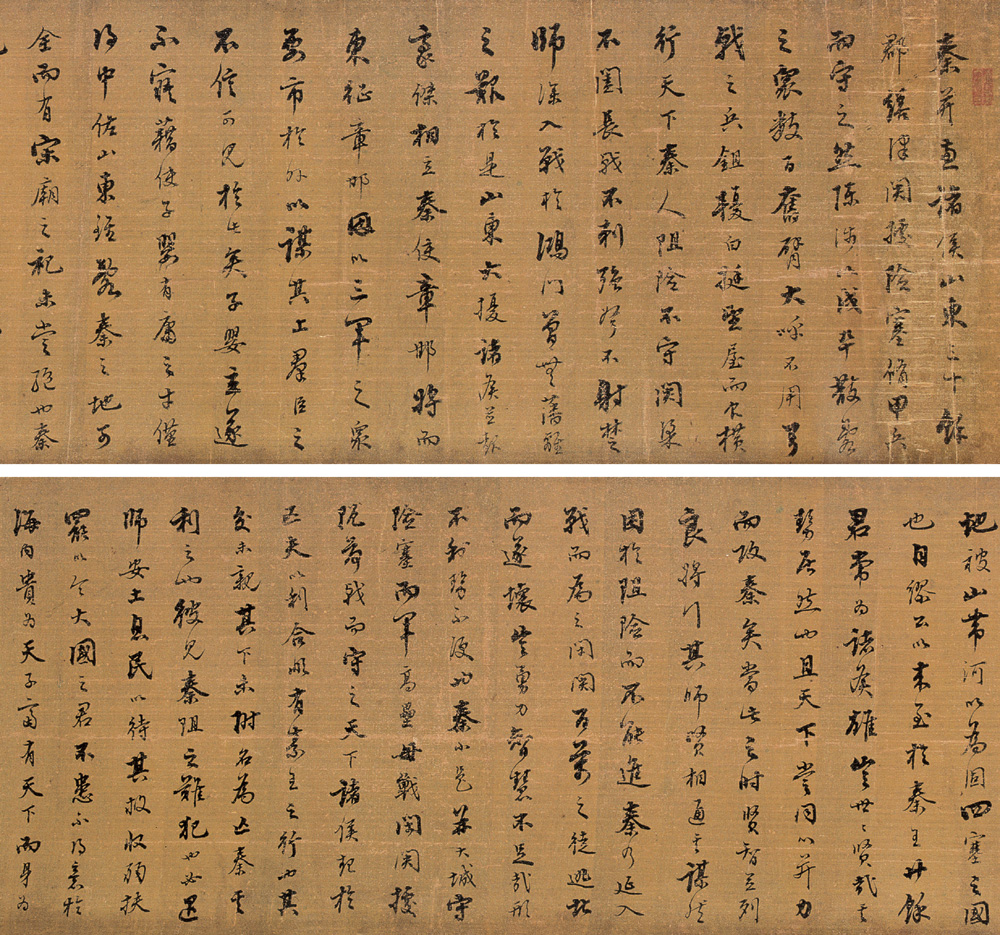 秦并兼諸侯山東三十餘
郡繕津関據險塞脩甲兵
而守之然陳涉以戍卒散亂
之衆數百奮臂大呼不用弓
戟之兵鉏耰白梃望屋而食橫
行天下秦人阻險不守関梁
不闔長戟不刺強弩不射楚
師深入戰於鴻門曾無藩籬
之艱於是山東大擾諸侯並起
豪傑相立秦使章邯將而
東征章邯因以三軍之衆
要市於外以謀其上羣臣之
不信可見於此矣子嬰立遂
不寤藉使子嬰有庸之才僅
得中佐山東雖亂秦之地可
全而有宗廟之祀未當絕也秦
地被山帶河以為固四塞之國
也自繆公以来至於秦王廿餘
君常為諸侯雄豈世〻賢哉其
勢居然也且天下嘗同心并力
而攻秦矣當此之時賢智並列
良將行其師賢相通其謀然
困於阻險而不能進秦乃延入
戰而為之開関百萬之徒逃北
而遂壞豈勇力智慧不足哉形
不利勢不便也秦小邑并大城守
險塞而軍高壘毋戰閉関據
阨荷戟而守之天下諸侯起於
匹夫以利合非有素王之行也其
交未親其下未附名為亡秦其
利之也彼見秦阻之難犯也必退
師安土息民以待其敝收弱扶
罷以令大國之君不患不得意於
海内貴為天子富有天下而身為